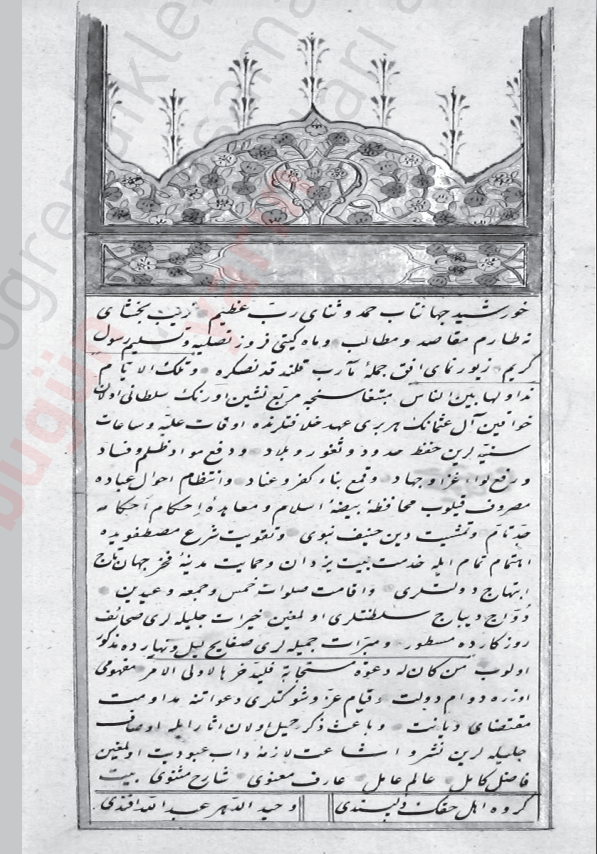 خورشید جهانتاب حمد و ثنای ربّ عظیم زینت بخشای
نه طارم مقاصد و مطالب و ماه کیتی فروز تصلیه و تسلیم رسول
کریم زیور نمای افق جملهٔ مآرب قلند قدنصکره و تلک الایّام
نداولها بین الناس مستفاسنجه مربع نشین اورنک سلطانی اولان
خواقین آل عثمانک هربری عهد خلافتلرنده اوقات علیّه و ساعات
سنیّه لرین حفظ حدود و ثغور و بلاد و دفع مواد ظلم و فساد
و رفع لواء غزا و جهاد و قمع بناء کفر و عناد و انتظام احوال عباده
مصروف قیلوب محافظهٔ بیضهٔ اسلام و معاهدهٔ احکام احکامه
جدّ تام و تمشیت دین حنیف نبوی و تقویت شرع مصطفویده
اهتمام تمام ایله خدمت بیت یزدان و حمایت مدینهٔ فخر جهان تاج
ابتهاج دولتلری و اقامت صلوات خمس و جمعه و عیدین
دوّاج دیباج سلطنتلری اولمغین خیرات جلیله لری صحائف
روزکارده مسطور و مبرّات جمیله لری صفایح لیل و نهارده مذکور
اولوب من کان له دعوة مستجابة فلیدخرها لاولی الامر مفهومی
اوزره دوام دولت و قیام عزّ و شوکتلری دعواتنه مداومت
مقتضای دیانت و باعث ذکر جمیل اولان اثار ایله اوصاف
جلیله لرین نشر و اشاعت لازمهٔ داب عبودیت اولمغین
فاضل کامل عالم عامل عارف معنوی شارح مثنوی بیت
کروه اهل حقک دلپسندی وحید الدّهر عبد الله افندی
bugün
öğrendikler